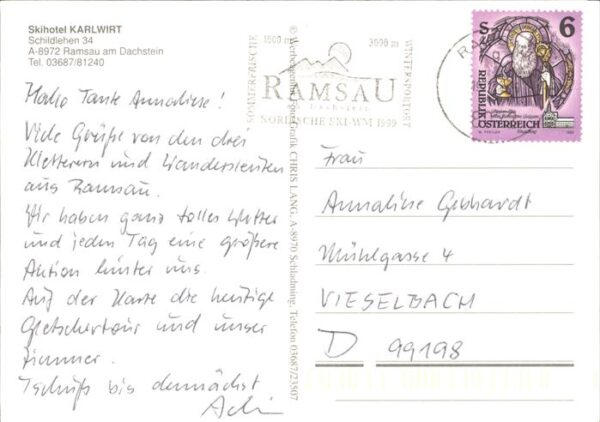 Skihotel KARLWIRT
Schildlehen 34
A-8972 Ramsau am Dachstein
Tel. 03687/81240
Hallo Tante Annaliese!
Viele Grüße von den drei
Kletterern und Wandersleuten
aus Ramsau.
Wir haben ganz tolles Wetter
und jeden Tag eine größere
Aktion hinter uns.
Auf der Karte die heutige
Gletschertour und unser
Zimmer.
Tschüß bis demnächst
CHRIS LANG, A-8970 Schladming, Telefon 03687/23507
SOMMERFRISCHE
3000 m
WINTERSPORTORT
RAMSAU
am Dachstein
NORDISCHE SKI-WM 1999
S 6
REPUBLIK
ÖSTERREICH
Frau
Annaliese Gebhardt
Mühlgasse 4
VIESELBACH
D 99198